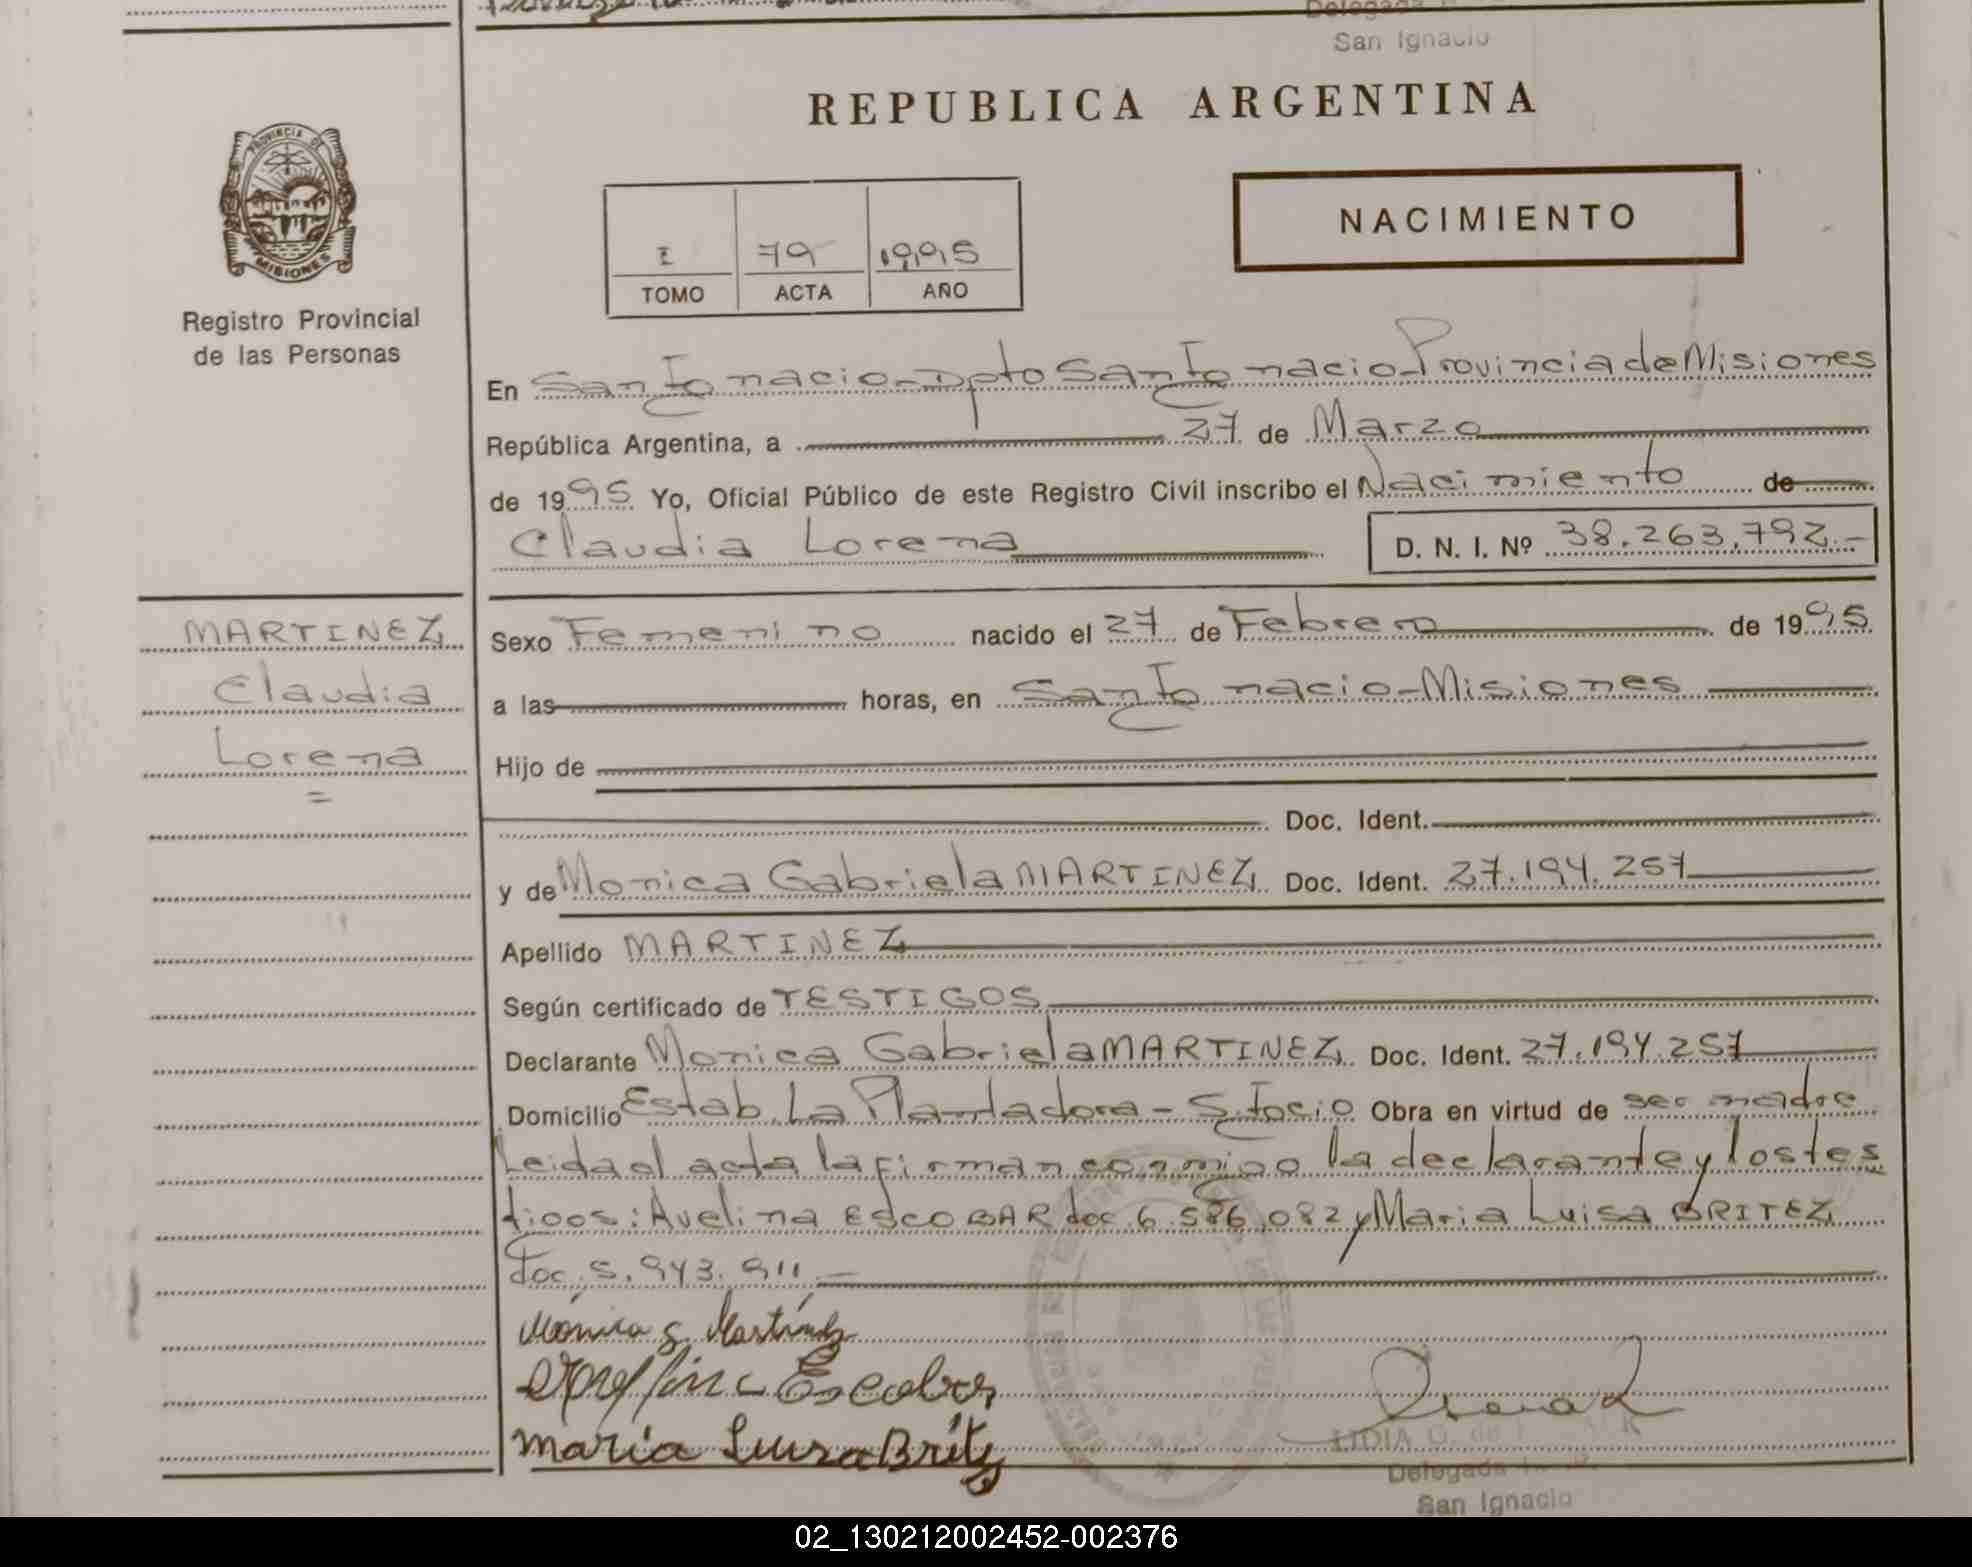 San Ignacio
REPUBLICA ARGENTINA
PROVINCIA DE
MISIONES
Registro Provincial
de las Personas
NACIMIENTO
I 79 1995
TOMO ACTA AÑO
En San Ignacio-Dpto San Ignacio-Provincia de Misiones
República Argentina, a 27 de Marzo
de 1995 Yo, Oficial Público de este Registro Civil inscribo el Nacimiento de
Claudia Lorena D. N. I. Nº 38.263.792.-
MARTINEZ
Claudia
Lorena
=
Sexo Femenino nacido el 27 de Febrero de 1995
a las horas, en San Ignacio-Misiones
Hijo de
Doc. Ident.
y de Monica Gabriela MARTINEZ Doc. Ident. 27.194.257
Apellido MARTINEZ
Según certificado de TESTIGOS
Declarante Monica Gabriela MARTINEZ Doc. Ident. 27.194.257
Domicilio Estab. La Plantadora - S. Igcio Obra en virtud de ser madre
Leida el acta la firman conmigo la declarante y los tes
tigos: Avelina ESCOBAR doc. 6.586.082 y Maria Luisa BRITEZ
doc. 5.943.911.-
Mónica G. Martínez
Escobar
Maria Luisa Britez
LIDIA G. de
Delegada
San Ignacio
02_130212002452-002376